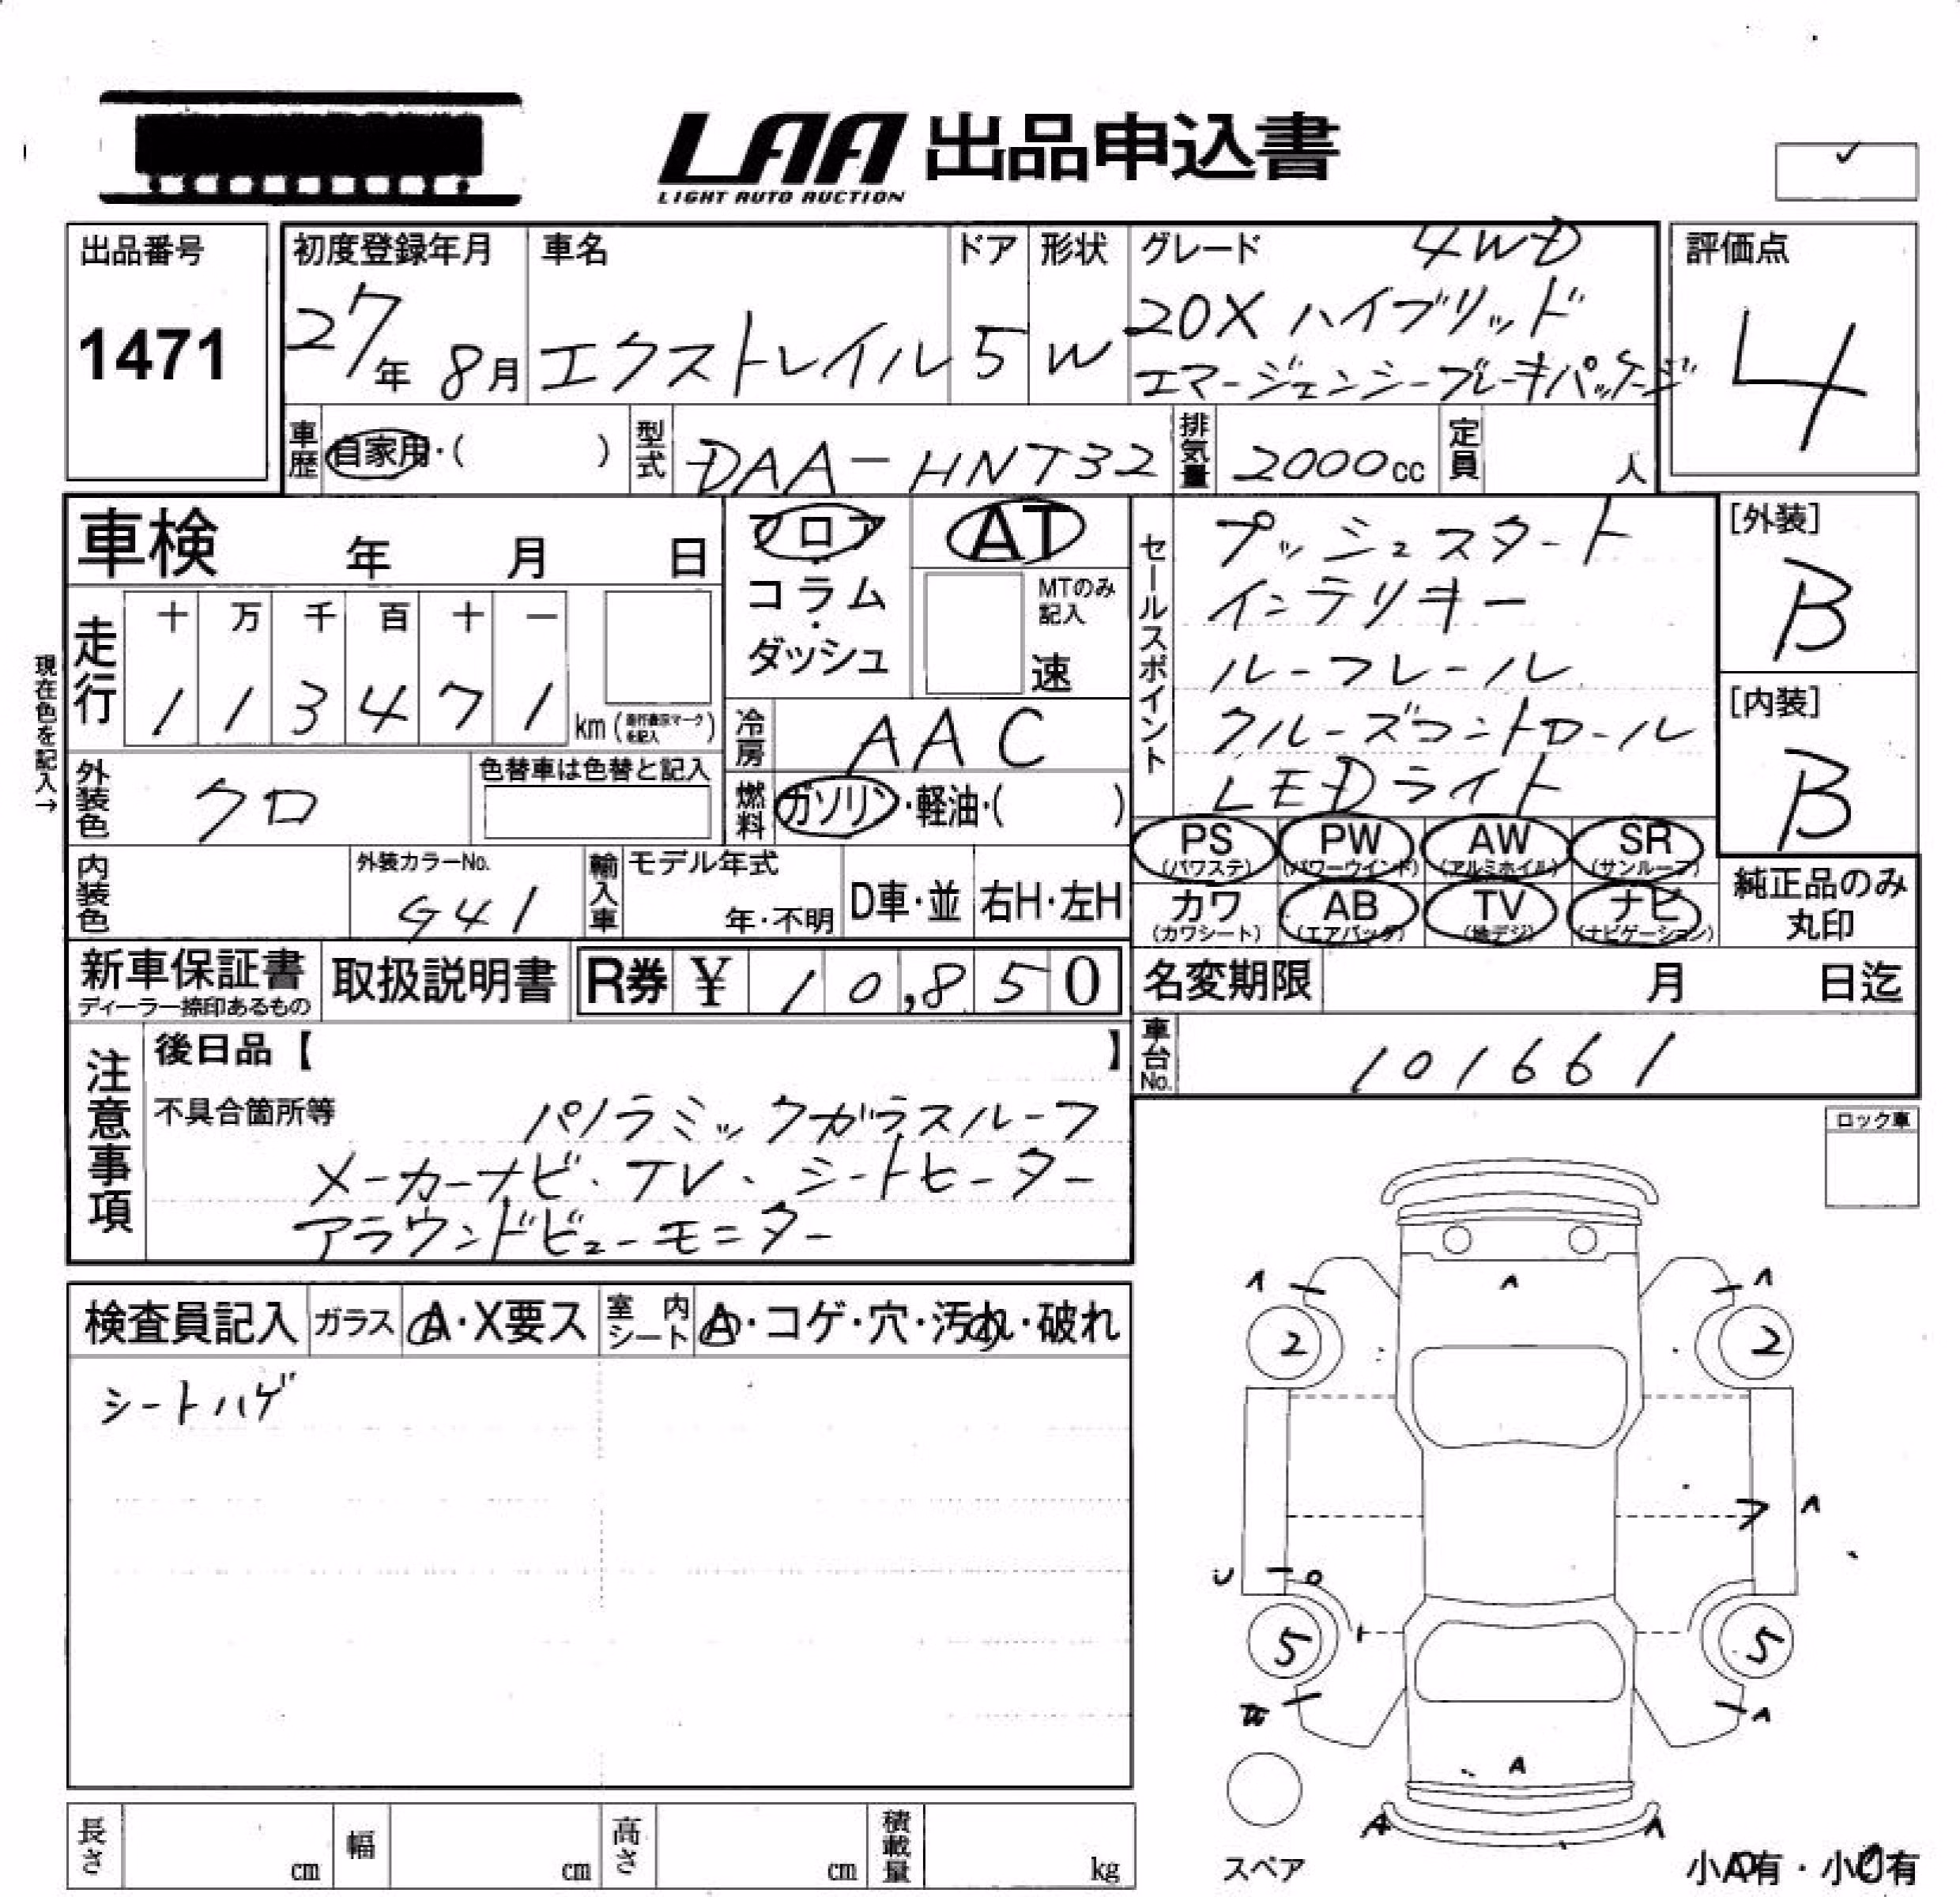 LAA 出品申込書
LIGHT AUTO AUCTION
出品番号
1471
初度登録年月
27年 8月
車名
エクストレイル
ドア
5
形状
W
グレード
4WD
20X ハイブリッド
エマージェンシーブレーキパッケージ
評価点
4
車歴
自家用・( )
型式
DAA-HNT32
排気量
2000cc
定員
人
車検 年 月 日
フロア
・
コラム
・
ダッシュ
AT
MTのみ
記入
速
セールスポイント
プッシュスタート
インテリキー
ルーフレール
クルーズコントロール
LEDライト
[外装]
B
[内装]
B
現在色を記入→
走行
十 万 千 百 十 一
1 1 3 4 7 1
km (走行表示マークを記入)
冷房
AAC
外装色
クロ
色替車は色替と記入
燃料
ガソリン・軽油・( )
PS
(パワステ)
PW
(パワーウインド)
AW
(アルミホイル)
SR
(サンルーフ)
カワ
(カワシート)
AB
(エアバッグ)
TV
(地デジ)
ナビ
(ナビゲーション)
純正品のみ
丸印
内装色
外装カラーNo.
G41
輸入車
モデル年式
年・不明
D車・並
右H・左H
新車保証書
ディーラー捺印あるもの
取扱説明書
R券 ¥ 10,850
名変期限 月 日迄
車台No.
101661
注意事項
後日品【 】
不具合箇所等
パノラミックガラスルーフ
メーカーナビ・TV・シートヒーター
アラウンドビューモニター
ロック車
検査員記入
ガラス
A・X要ス
室内シート
A・コゲ・穴・汚れ・破れ
シートハゲ
2
2
5
5
A
A
スペア
小A有・小U有
長さ
cm
幅
cm
高さ
cm
積載量
kg